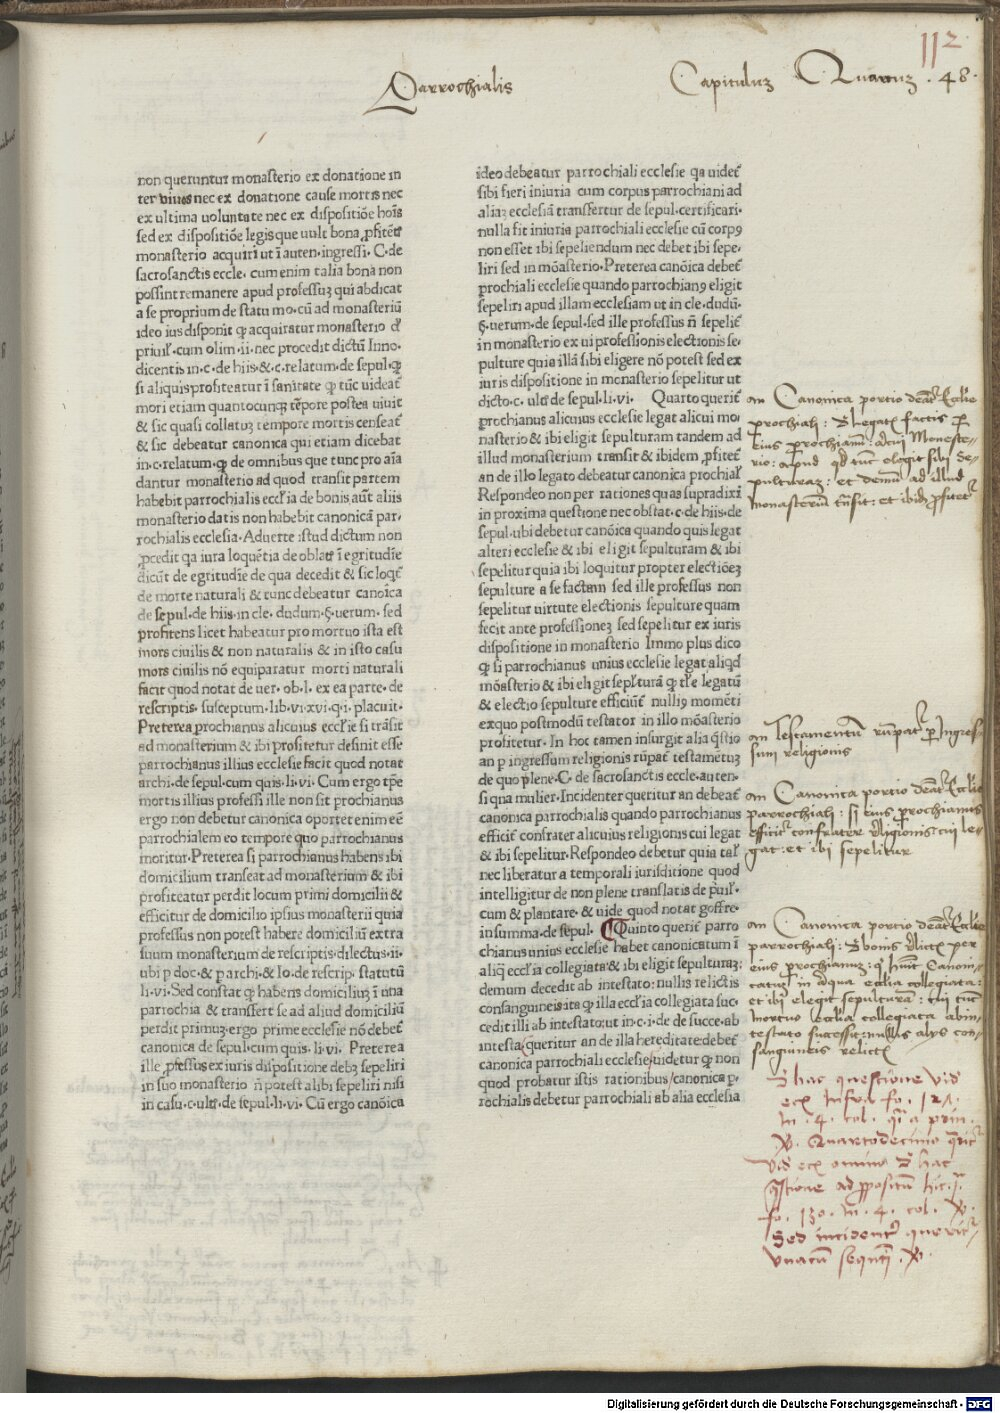 112
Parrochialis Capituluz Quartuz . 48.
non queruntur monasterio ex donatione in
ter viuos nec ex donatione cause mortis nec
ex ultima uoluntate nec ex dispositiōe hoīs
sed ex dispositiōe legis que uult bona ꝓfitētis
monasterio acquiri ut ī auten·ingressi·C·de
sacrosanctis eccle·cum enim talia bona non
possint remanere apud professuꝫ qui abdicat
a se proprium de statu mo·cū ad monasteriū
ideo ius disponit ꝙ acquiratur monasterio
priuil·cum olim·ii·nec procedit dictū Inno·
dicentis in·c·de hiis·&·c·relatum·de sepul·ꝙ
si aliquis profiteatur ī sanitate ꝙ tūc uideat̄
mori etiam quantocunqꝫ tēpore postea uiuit
& sic quasi collatuꝫ tempore mortis censeat̄
& sic debeatur canonica qui etiam dicebat
in·c·relatum·ꝙ de omnibus que tunc pro aīa
dantur monasterio ad quod transit partem
habebit parrochialis eccl'ia de bonis aūt aliis
monasterio datis non habebit canonicā par·
rochialis ecclesia·Aduerte istud dictum non
ꝓcedit qa iura loquētia de oblatis ī egritudīe
dicūt de egritudīe de qua decedit & sic loqt̄
de morte naturali & tunc debeatur canoīca
de sepul·de hiis·in cle·dudum·§·uerum·sed
profitens licet habeatur pro mortuo ista est
mors ciuilis & non naturalis & in isto casu
mors ciuilis nō equiparatur morti naturali
facit quod notat de uer·ob·l·ex ea parte·de
rescriptis·susceptum·lib·vi·xvi·q·i·placuit·
Preterea prochianus alicuius eccl'ie si trāsit
ad monasterium & ibi profitetur definit esse
parrochianus illius ecclesie facit quod notat
archi·de sepul·cum quis·li·vi·Cum ergo tp̄e
mortis illius professi ille non sit prochianus
ergo non debetur canonica oportet enim eē
parrochialem eo tempore quo parrochianus
moritur·Preterea si parrochianus habens ibi
domicilium transeat ad monasterium & ibi
profiteatur perdit locum primi domicilii &
efficitur de domicilio ipsius monasterii quia
professus non potest habere domiciliū extra
suum monasterium de rescriptis·dilectus·ii·
ubi p doc·& parchi·& Io·de rescrip·statutū
li·vi·Sed constat ꝙ habens domiciliuꝫ ī una
parochia & transfert se ad aliud domiciliū
perdit primuꝫ·ergo prime ecclesie nō debet̄
canonica de sepul·cum quis·li·vi· Preterea
ille ꝓfessus ex iuris dispositione debꝫ sepeliri
in suo monasterio n̄ potest alibi sepeliri nisi
in casu·c·ulti·de sepul·li·vi·Cū ergo canōica
ideo debeatur parrochiali ecclesie qa uidet̄
sibi fieri iniuria cum corpus parrochiani ad
aliaꝫ ecclesiā transfertur de sepul·certificari·
nulla fit iniuria parrochiali ecclesie cū corpꝯ
non esset ibi sepeliendum nec debet ibi sepe·
liri sed in mōasterio·Preterea canōica debet̄
prochiali ecclesie quando parrochianꝯ eligit
sepeliri apud illam ecclesiam ut in cle·dudū·
§·uerum·de sepul·sed ille professus n̄ sepelit̄
in monasterio ex ui professionis electionis se·
pulture quia illā sibi eligere nō potest sed ex
iuris dispositione in monasterio sepelitur ut
dicto·c·ulti·de sepul·li·vi· Quarto querit̄
prochianus alicuius ecclesie legat alicui mo
nasterio & ibi eligit sepulturam tandem ad
illud monasterium transit & ibidem ꝓfitet̄
an de illo legato debeatur canonica prochial'
Respondeo non per rationes quas supradixi
in proxima questione nec obstat·c·de hiis·de
sepul·ubi debetur canōica quando quis legat
alteri ecclesie & ibi eligit sepulturam & ibi
sepelitur quia ibi loquitur propter electiōeꝫ
sepulture a se factam sed ille professus non
sepelitur uirtute electionis sepulture quam
fecit ante professioneꝫ sed sepelitur ex iuris
dispositione in monasterio Immo plus dico
ꝙ si parrochianus unius ecclesie legat aliqd
mōasterio & ibi eligit sepl'turā ꝙ tl'e legatū
& electio sepulture efficiūt̄ nulliꝯ momēti
exquo postmodū testator in illo mōasterio
profitetur·In hoc tamen insurgit alia q̄stio
an p ingressum religionis rūpat̄ testametuꝫ
de quo plene·C·de sacrosanctis eccle·auten·
si qua mulier·Incidenter queritur an debeat̄
canonica parrochialis quando parrochianus
efficit̄ confrater alicuius religionis cui legat
& ibi sepelitur·Respondeo debetur quia tal'
nec liberatur a temporali iurisditione quod
intelligitur de non plene translatis de p̄uil'·
cum & plantare·& uide quod notat goffre·
in summa·de sepul· Quinto querit̄ parro
chianus unius ecclesie habet canonicatum ī
aliq eccl'ia collegiata & ibi eligit sepulturaꝫ:
demum decedit ab intestato: nullis relictis
consanguineis ita ꝙ illa eccl'ia collegiata suc·
cedit illi ab intestato: ut in·c·i·de de succe·ab
intesta/queritur an de illa hereditate debet̄
canonica parrochiali ecclesie/uidetur ꝙ non
quod probatur istis rationibus/canonica p·
rochialis debetur parrochiali ab alia ecclesia
an Canonica portio deat̄ Ecclie
prochiali: D Legatis factis per
eius prochianū: alicui Moneste-
rio: apud qd tūc elegit sibi Se-
pulturaz: et demū ad illud
monasteriū trāsit: et ibidē profitet̄
an Testamentū rūpat̄ p Ingres-
sum religionis
an Canonica portio deat̄ Ecclie
parrochiali: si eius prochianus
efficit̄ confrater religionis cui le-
gat: et ibi sepelitur
an Canonica portio deat̄ Ecclie
parrochiali: D bonis relictis per
eius prochianuz: q̄ huit Canoni-
catum in aliqua ecclia collegiata:
et ibi elegit sepulturā: cui tūc
mortuo ecclia collegiata abin-
testato successit: nullis alijs con-
sanguineis relictis
D hac questione vide
ecz infra. fo. 121.
in. 4. col.
Quartodecimo querit̄
vide ecz omnino D hac
questione ad propositū hic.
fo. 130. in. 4. col.
Sed incident̄ querit̄
vnacū sequēti.
Digitalisierung gefördert durch die Deutsche Forschungsgemeinschaft - DFG